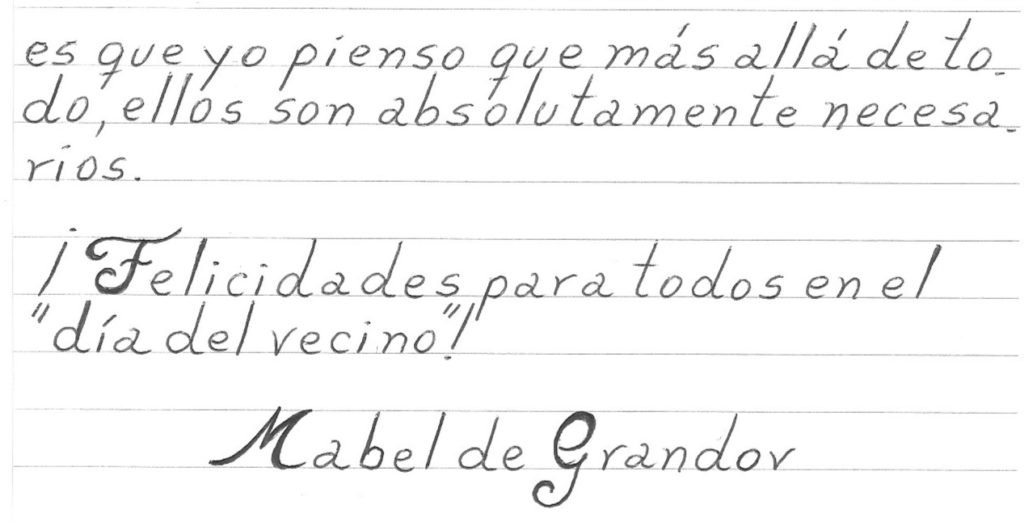 es que yo pienso que más allá de to-
do, ellos son absolutamente necesa-
rios.
¡Felicidades para todos en el
"día del vecino"!
Mabel de Grandov